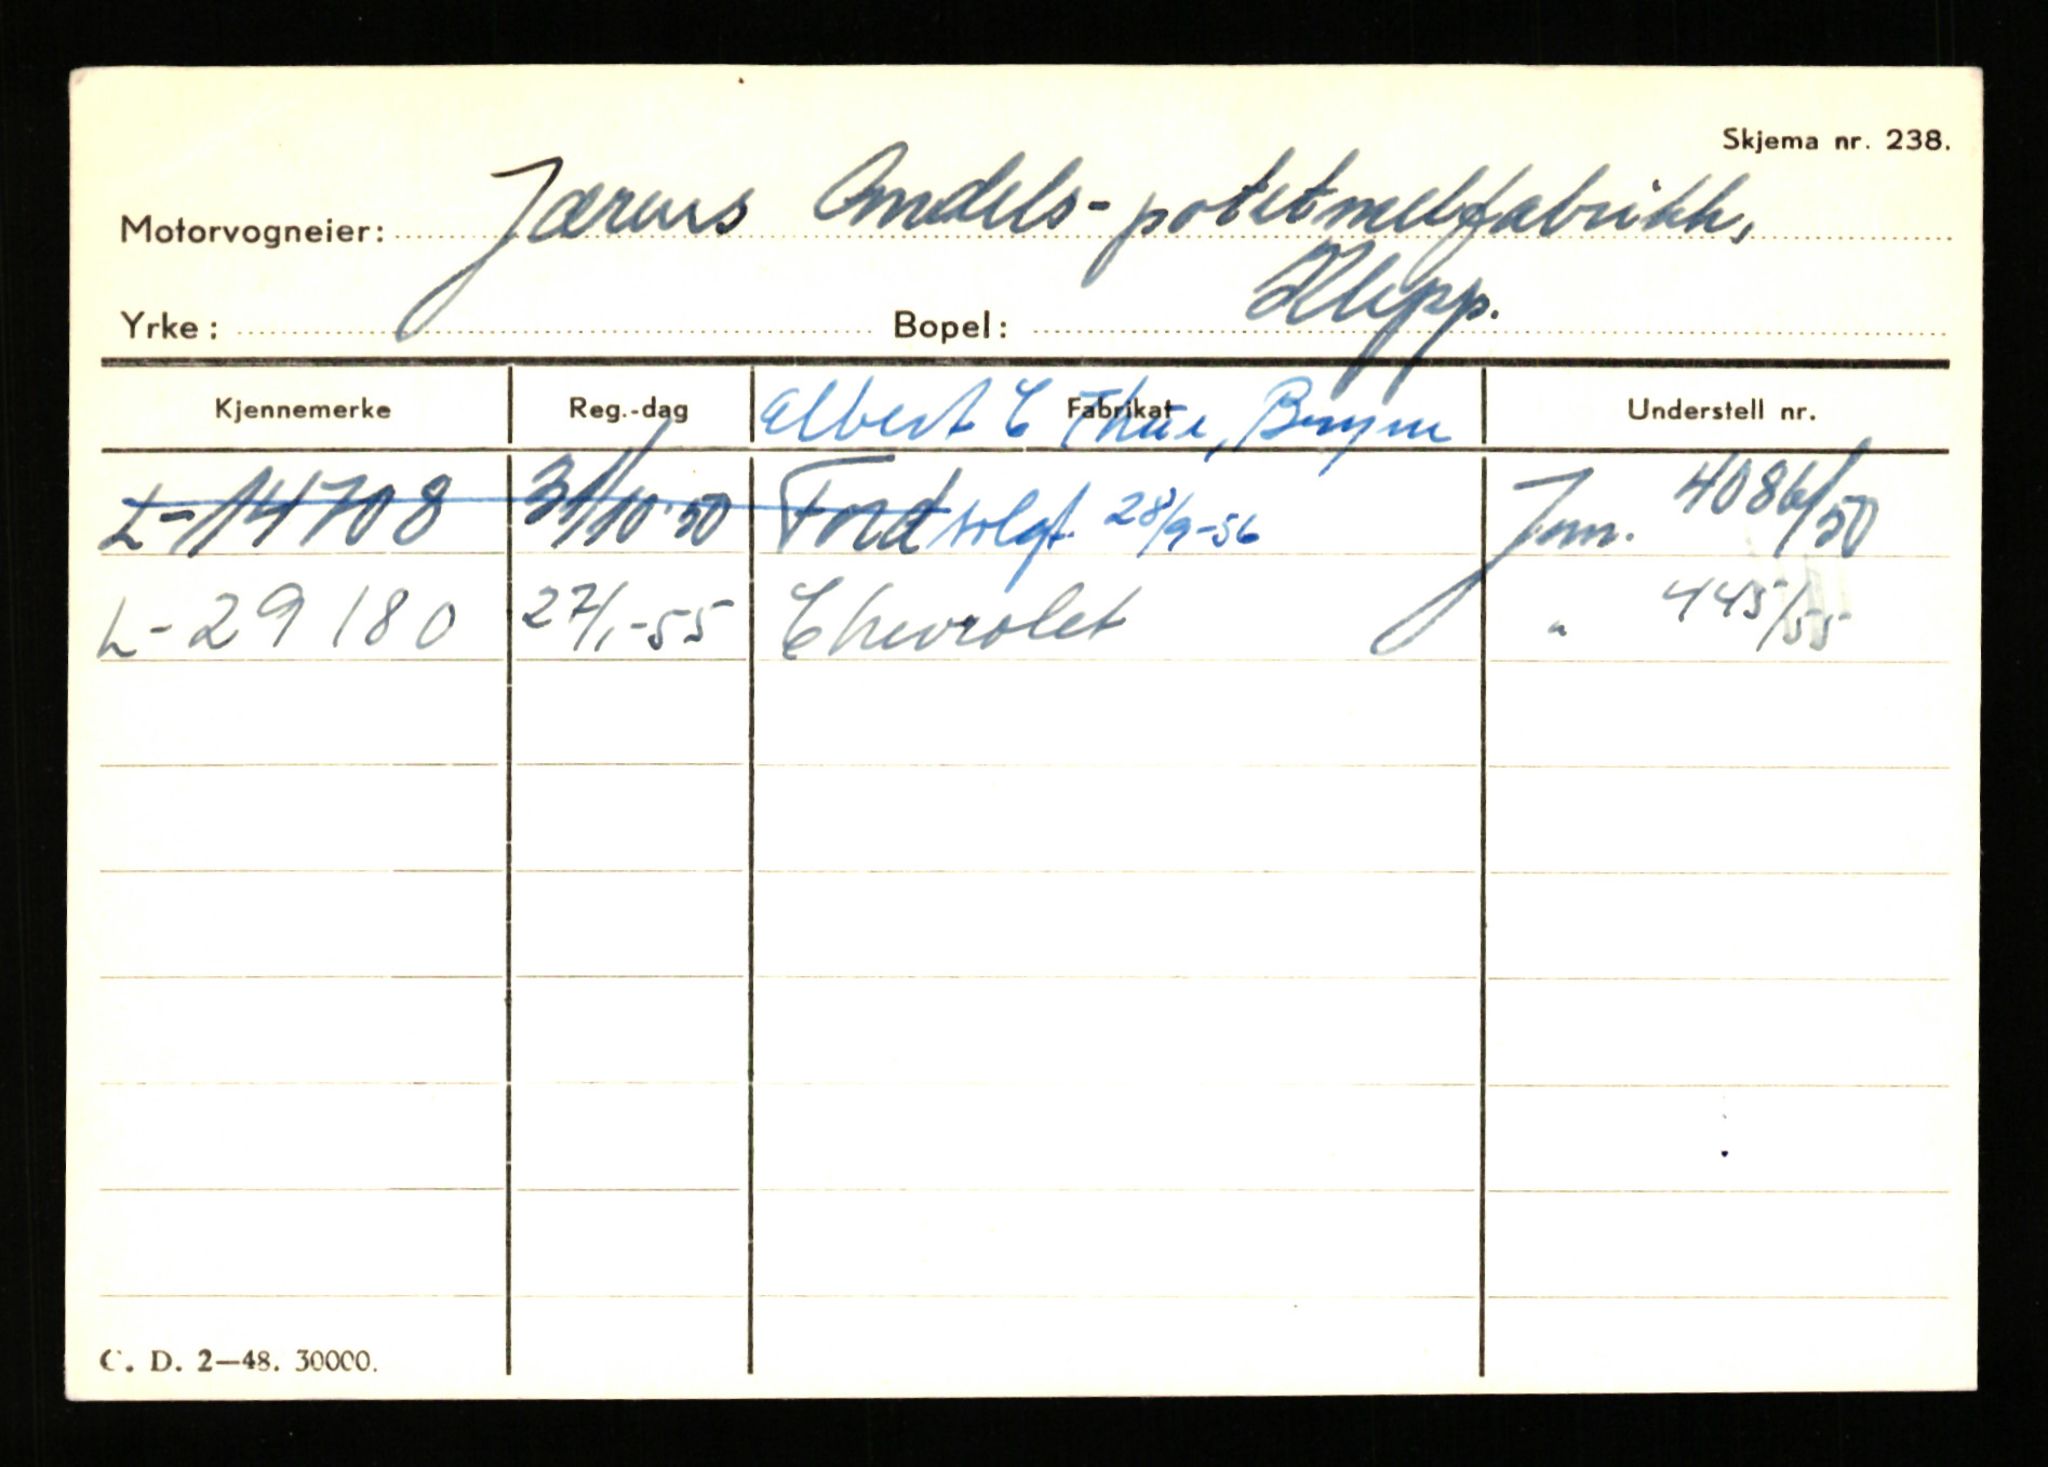 Skjema nr. 238.
Motorvogneier: Jærens Andels-potetmelfabrikk,
Yrke: Bopel: Klepp.
Kjennemerke Reg.-dag Fabrikat Understell nr.
Albert C Thu, Bryne
L-14708 31/10-50 Ford solgt. 28/9-56 Jnn. 4086/50
L-29180 27/1-55 Chevrolet " 445/55
C. D. 2—48. 30000.